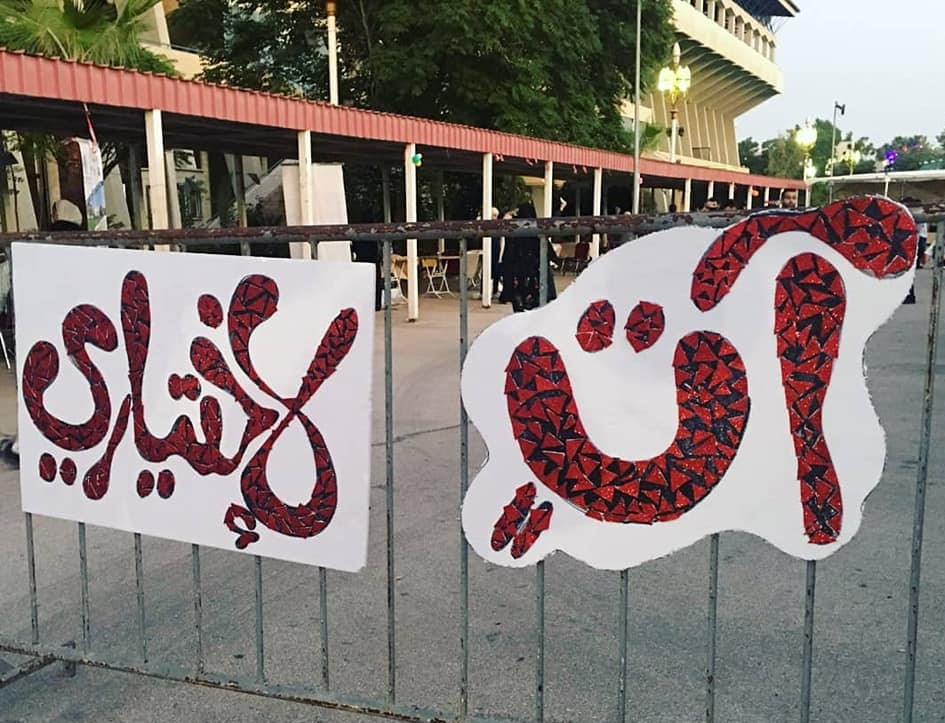 آتٍ لإختياري